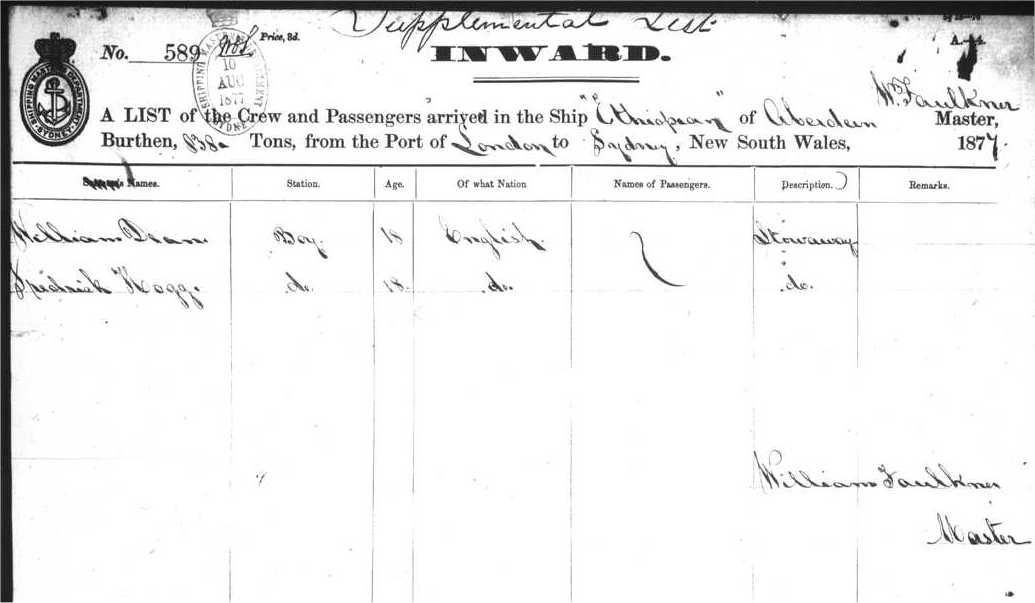 Supplemental List
No. 589
Price, 3d.
INWARD.
SHIPPING MASTER'S DEPARTMENT
SYDNEY
10
AUG
1877
SYDNEY
A LIST of the Crew and Passengers arrived in the Ship "Ethiopian" of Aberdeen Wm Faulkner Master,
Burthen, 838 Tons, from the Port of London to Sydney, New South Wales, 1877
Names. Station. Age. Of what Nation Names of Passengers. Description. Remarks.
William Dean Boy. 18 English. Stowaway
Fredrick Hogg. do. 18. do. do.
William Faulkner
Master